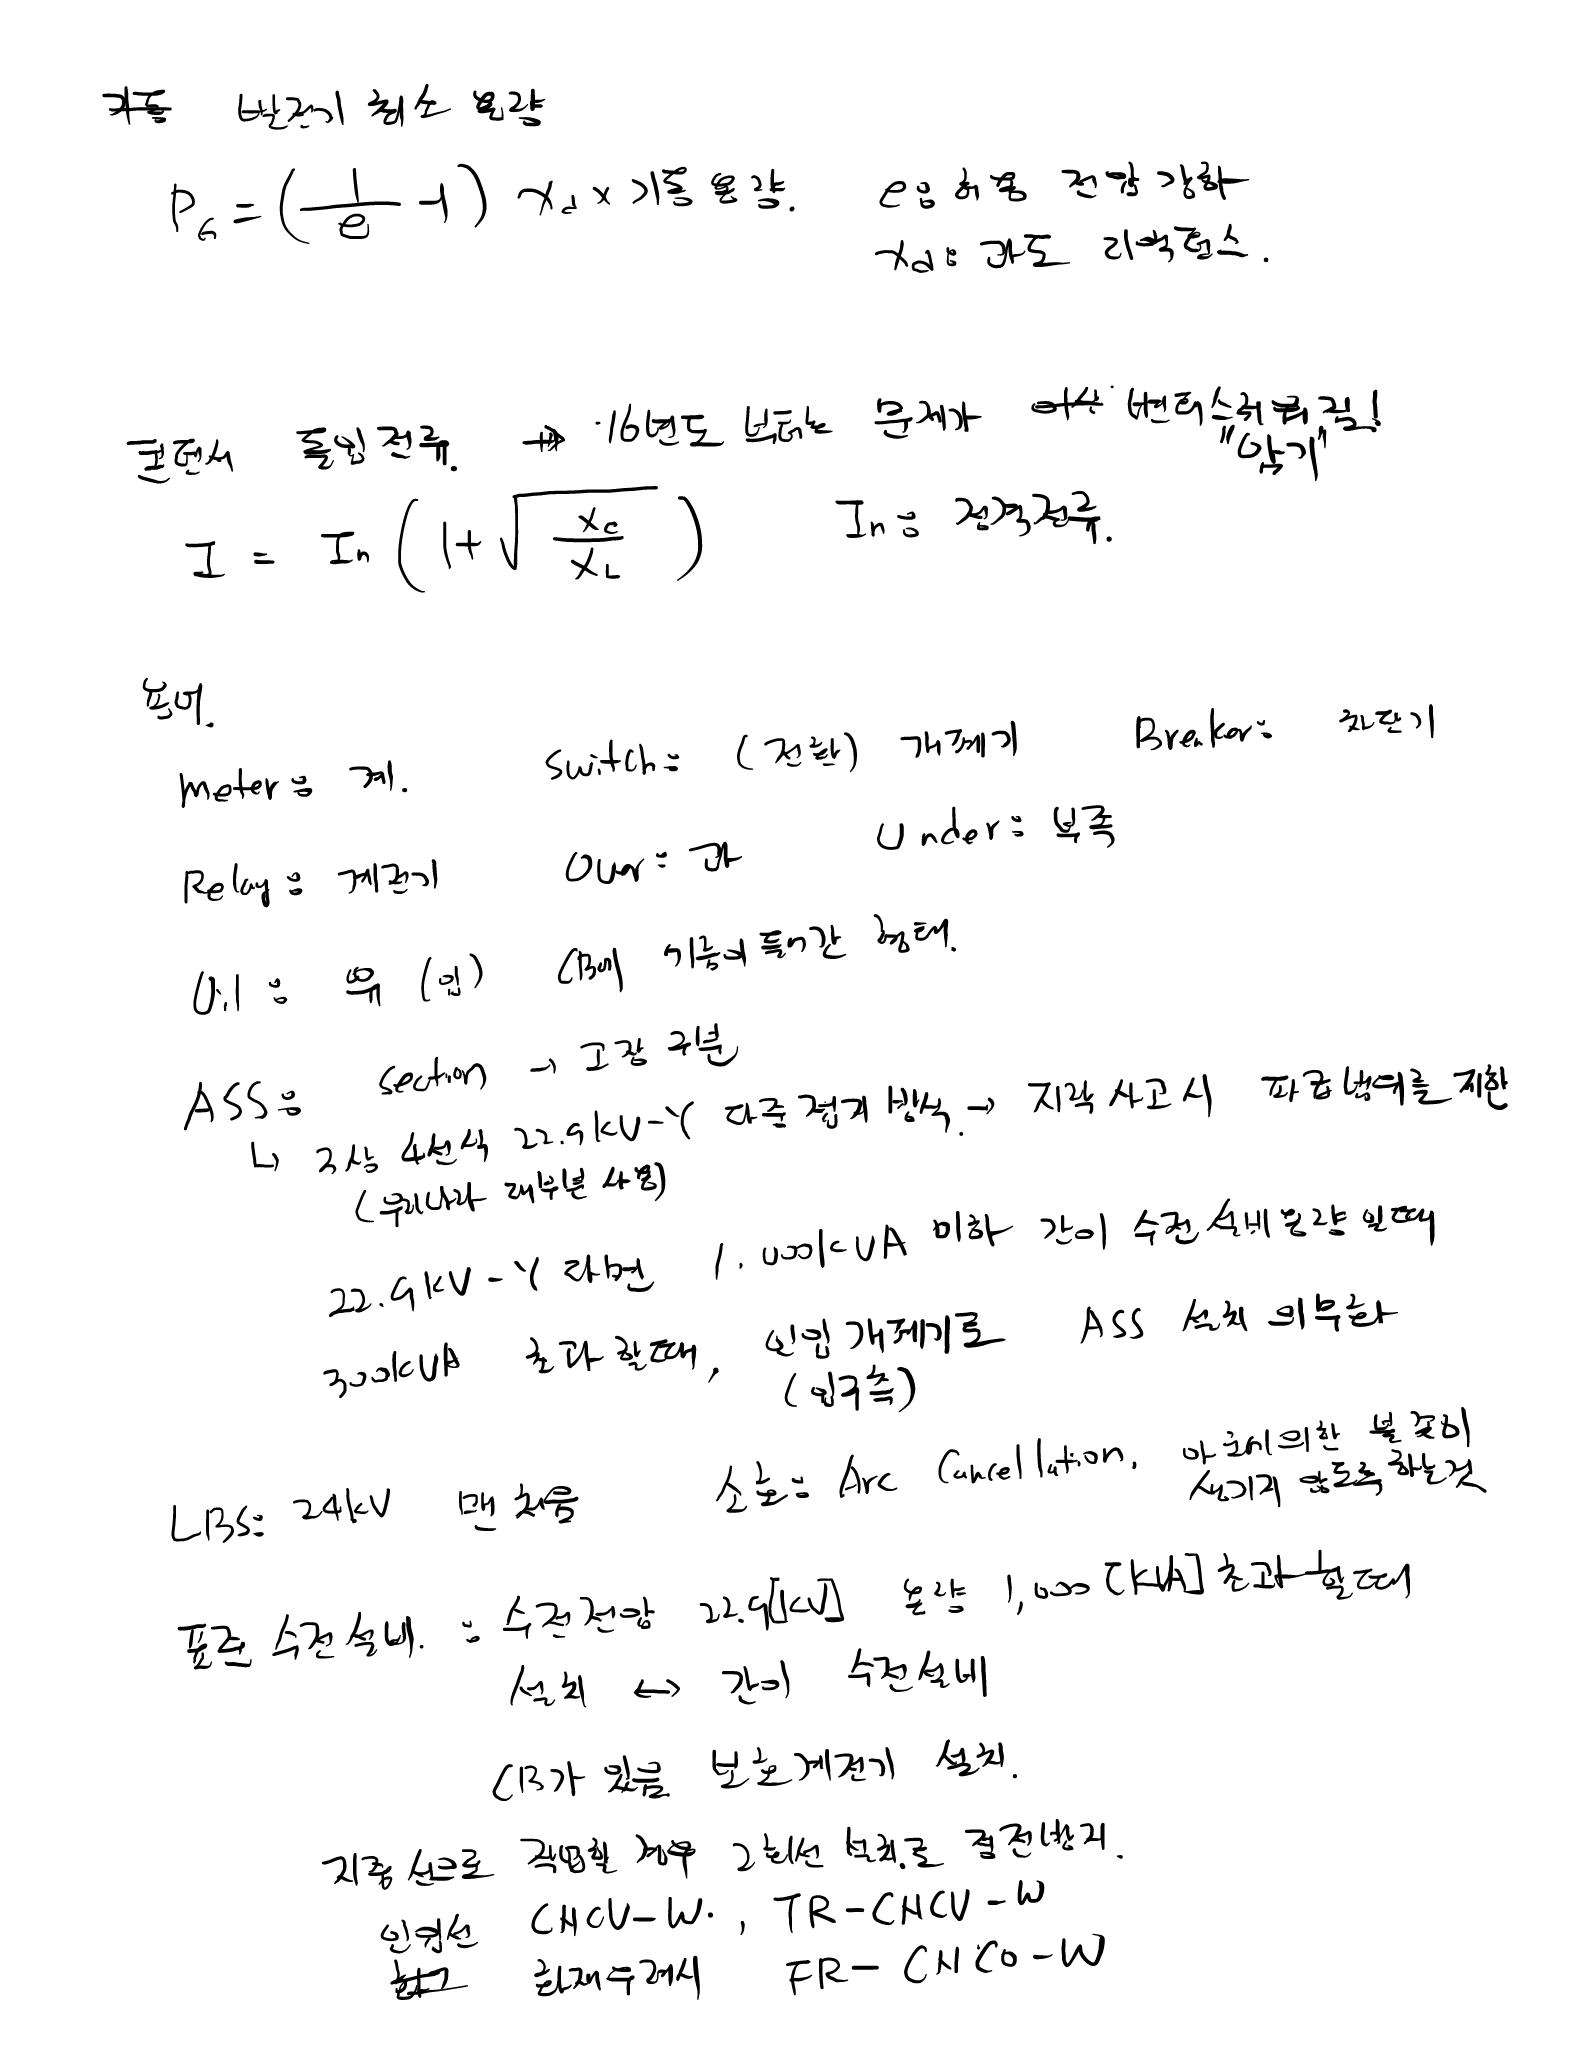 기동 발전기 최소 용량
P_G = (1/e - 1) x_d × 기동 용량. e: 허용 전압 강하
x_d: 과도 리액턴스.
콘덴서 돌입전류. → 16년도 부터는 문제가
"암기"
I = In (1 + √(Xc/XL)) In: 정격전류.
용어.
meter: 계. Switch: (전환) 개폐기 Breaker: 차단기
Relay: 계전기 Over: 과 Under: 부족
Oil: 유 (입) CB에 기름이 들어간 형태.
ASS: section → 고장 구분
↳ 3상 4선식 22.9kV-Y 다중 접지 방식. → 지락 사고 시 파급 범위를 제한
(우리나라 대부분 사용)
22.9kV-Y 라면 1,000kVA 이하 간이 수전 설비용량 일때
300kVA 초과 할때, 인입 개폐기로 ASS 설치 의무화
(입구측)
LBS: 24kV 맨 처음 소호: Arc Cancellation. 아크에 의한 불꽃이
생기지 않도록 하는것
표준 수전설비. : 수전전압 22.9[kV] 용량 1,000 [kVA] 초과 할때
설치 ↔ 간이 수전설비
CB가 있음 보호계전기 설치.
지중선으로 작업할 경우 2회선 설치로 정전방지.
인입선 CNCV-W. , TR-CNCV-W
화재우려시 FR-CNCO-W